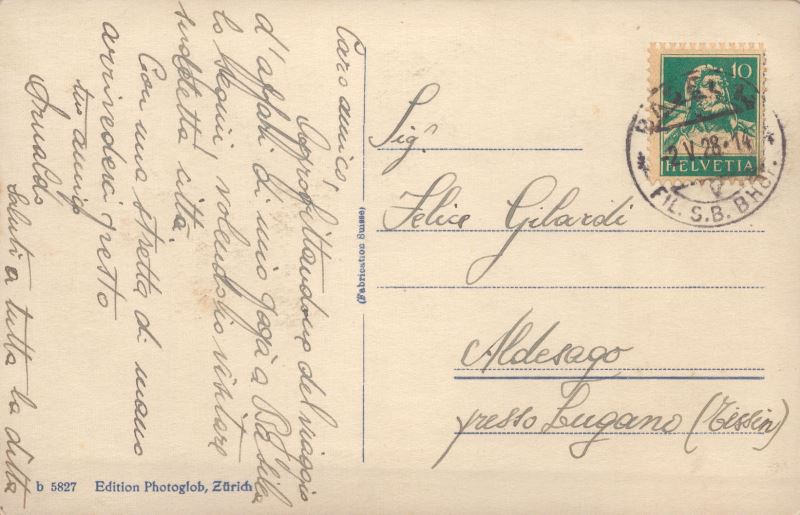 Caro amico,
Approfittandone del viaggio
d'affari di mio papà a Basilea
lo seguii, volendolo visitare
suddetta città.
Con una stretta di mano
arrivederci presto
tuo amico
Arnaldo
Saluti a tutta la ditta
(Fabrication Suisse)
b 5827 Edition Photoglob, Zürich
10
HELVETIA
BASEL
2.V.28.14
FIL. S.B. BHOF.
Sigr.
Felice Gilardi
Aldesago
presso Lugano (Tessin)